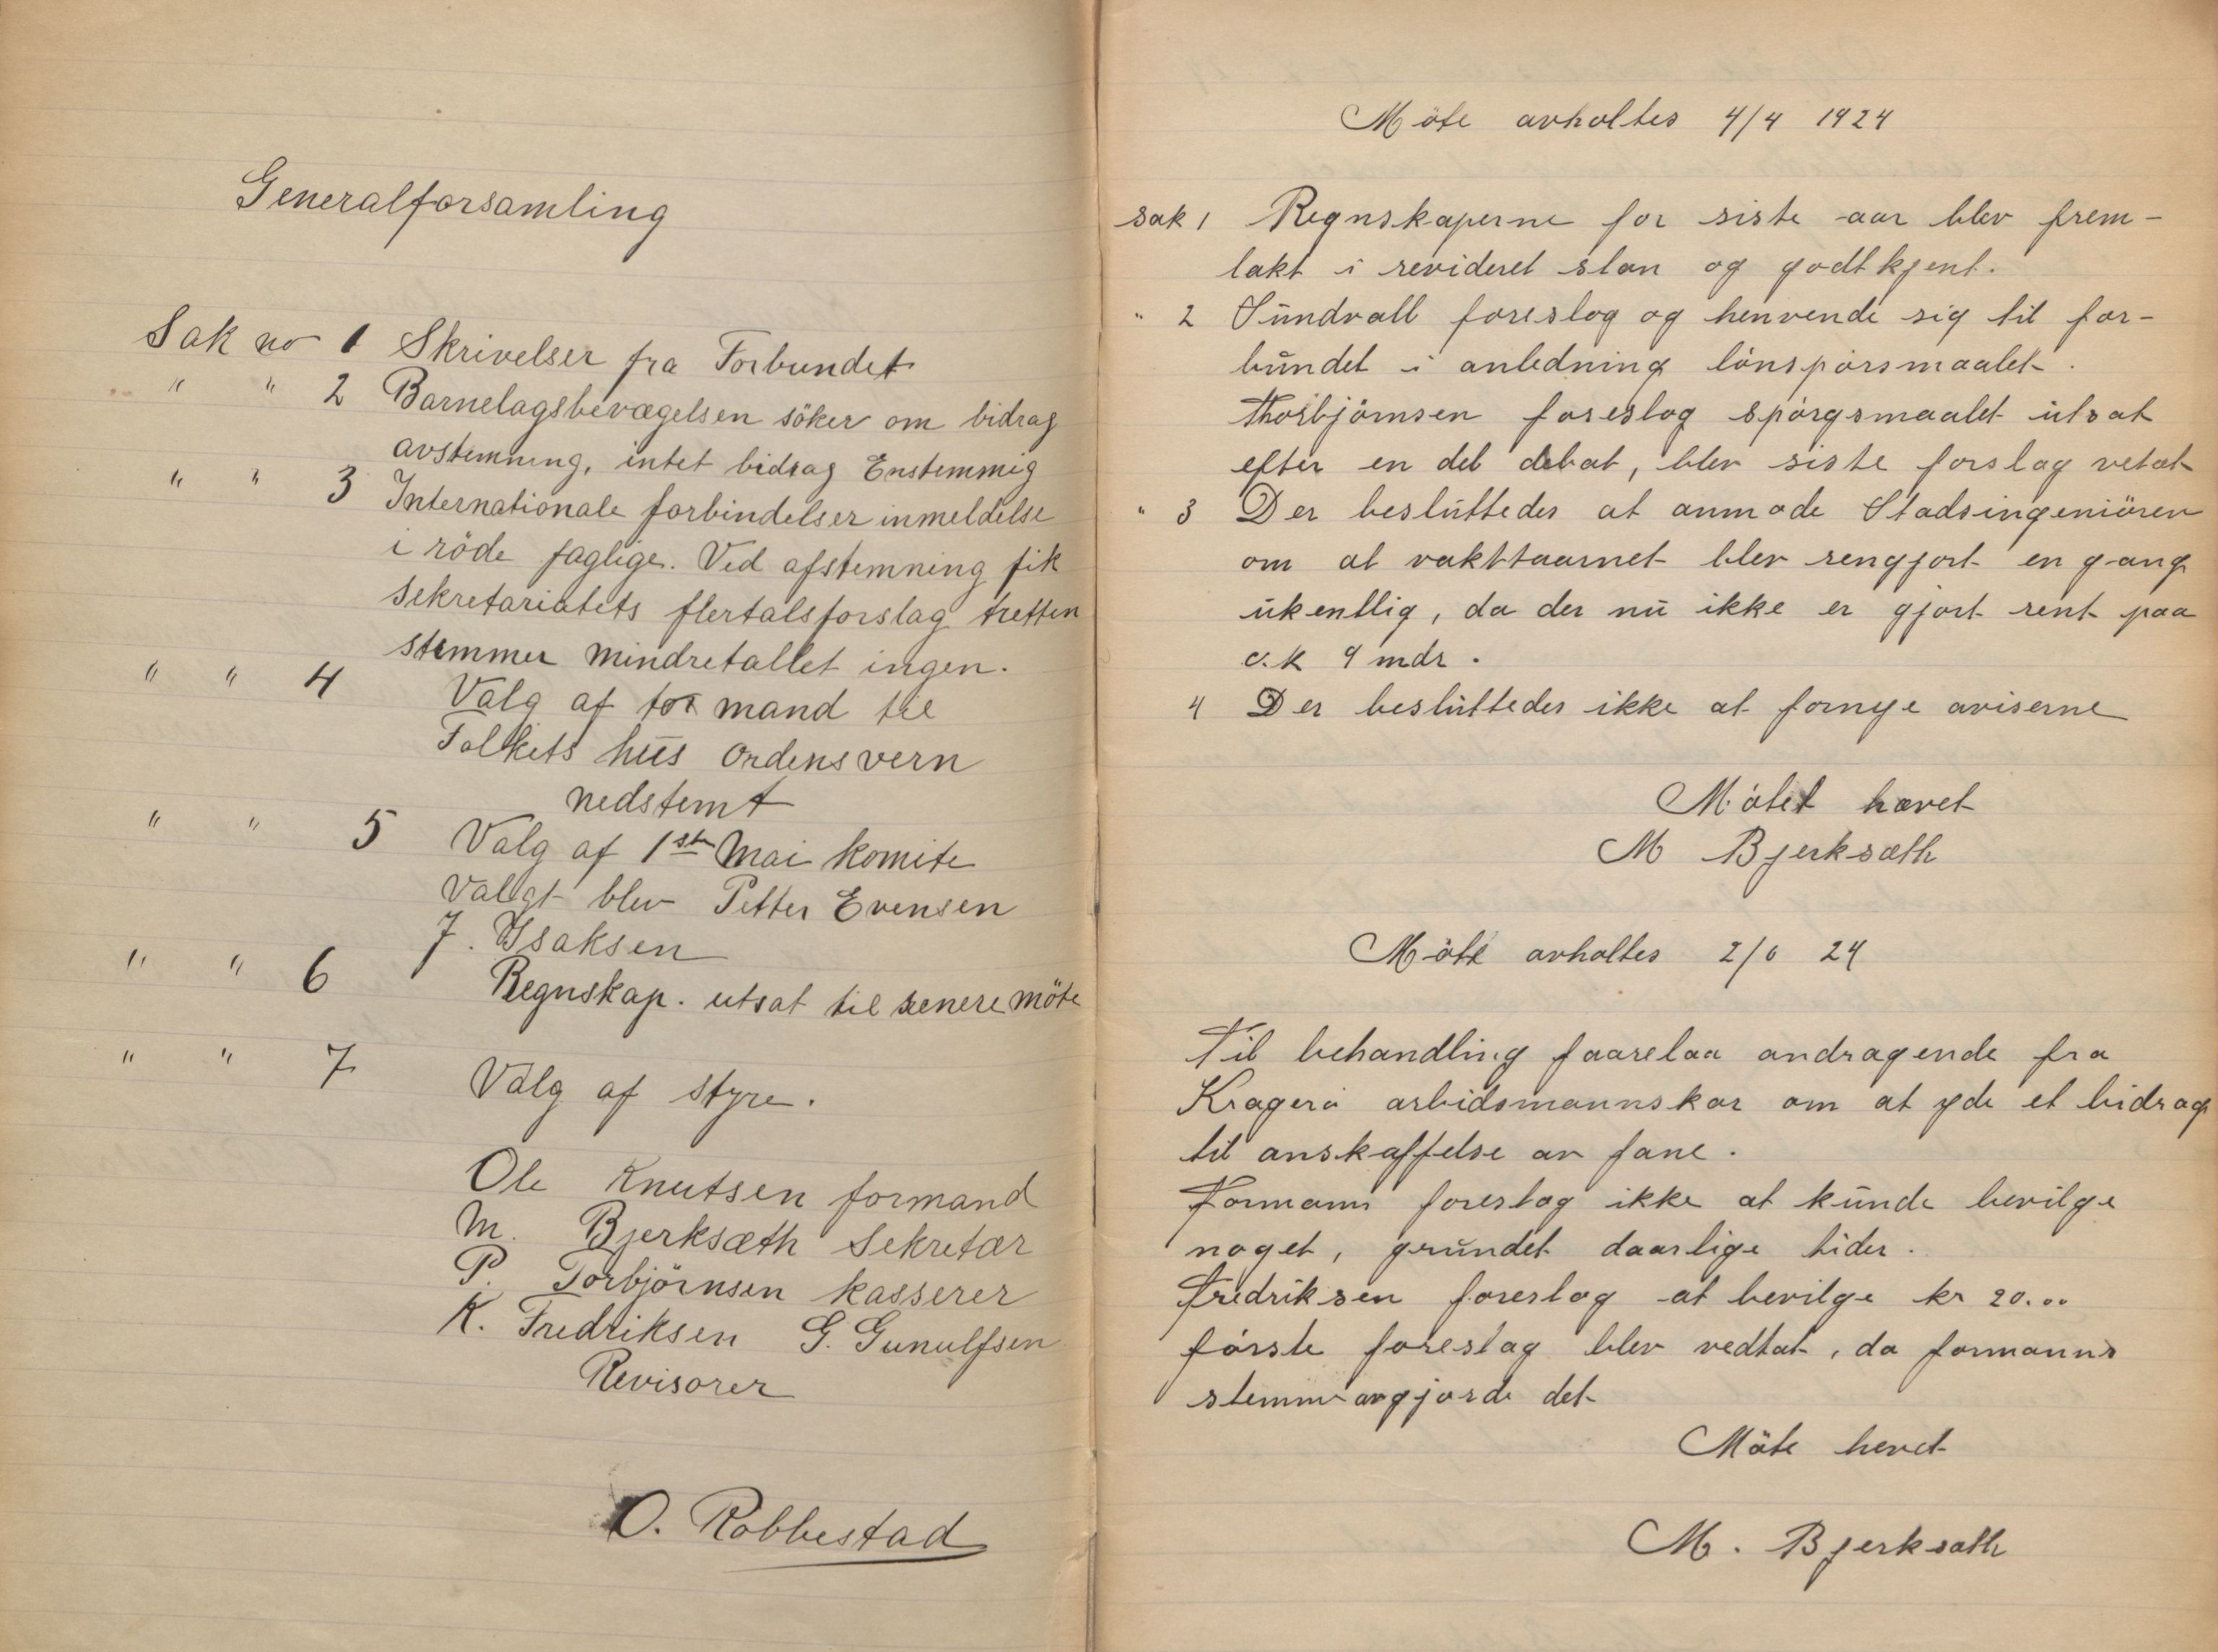 Generalforsamling
Sak no 1 Skrivelser fra Forbundet
" " 2 Barnelagsbevægelsen söker om bidrag
avstemning, intet bidrag Enstemmig
" " 3 Internationale forbindelser inmeldelse
i röde faglige. Ved afstemning fik
Sekretariatets flertalsforslag tretten
stemmer mindretallet ingen.
" " 4 Valg af mand til
Folkets hus ordensvern
nedstemt
" " 5 Valg af 1ste Mai komite
Valgt blev Petter Evensen
J. Isaksen
" " 6 Regnskap. utsat til senere möte
" " 7 Valg af styre.
Ole Knutsen formand
M. Bjerksæth Sekretær
P. Torbjörnsen kasserer
K. Fredriksen G. Gunulfsen
Revisorer
O. Robbestad
Möte avholtes 4/4 1924
Sak 1 Regnskaperne for siste aar blev frem-
lakt i revideret stan og godtkjent.
" 2 Sundvall foreslog og henvende sig til for-
bundet i anledning lönspörsmaalet.
Thorbjörnsen foreslog spörgsmaalet utsat
efter en del debat, blev siste forslag vetat
" 3 Der besluttedes at anmode Stadsingeniören
om at vakttaarnet blev rengjort en gang
ukentlig, da der nu ikke er gjort rent paa
c.k 9 mdr.
4 Der besluttedes ikke at fornye aviserne
Mötet hævet
M Bjerksæth
Möte avholtes 2/6 24
Til behandling faarelaa andragende fra
Kragerö arbidsmannskor om at yde et bidrag
til anskaffelse av fane.
Formann foreslog ikke at kunde bevilge
noget, grundet daarlige tider.
Fredriksen foreslog at bevilge kr 20.00
förste foreslag blev vedtat, da formanns
stemme avgjorde det
Möte hevet
M. Bjerksæth